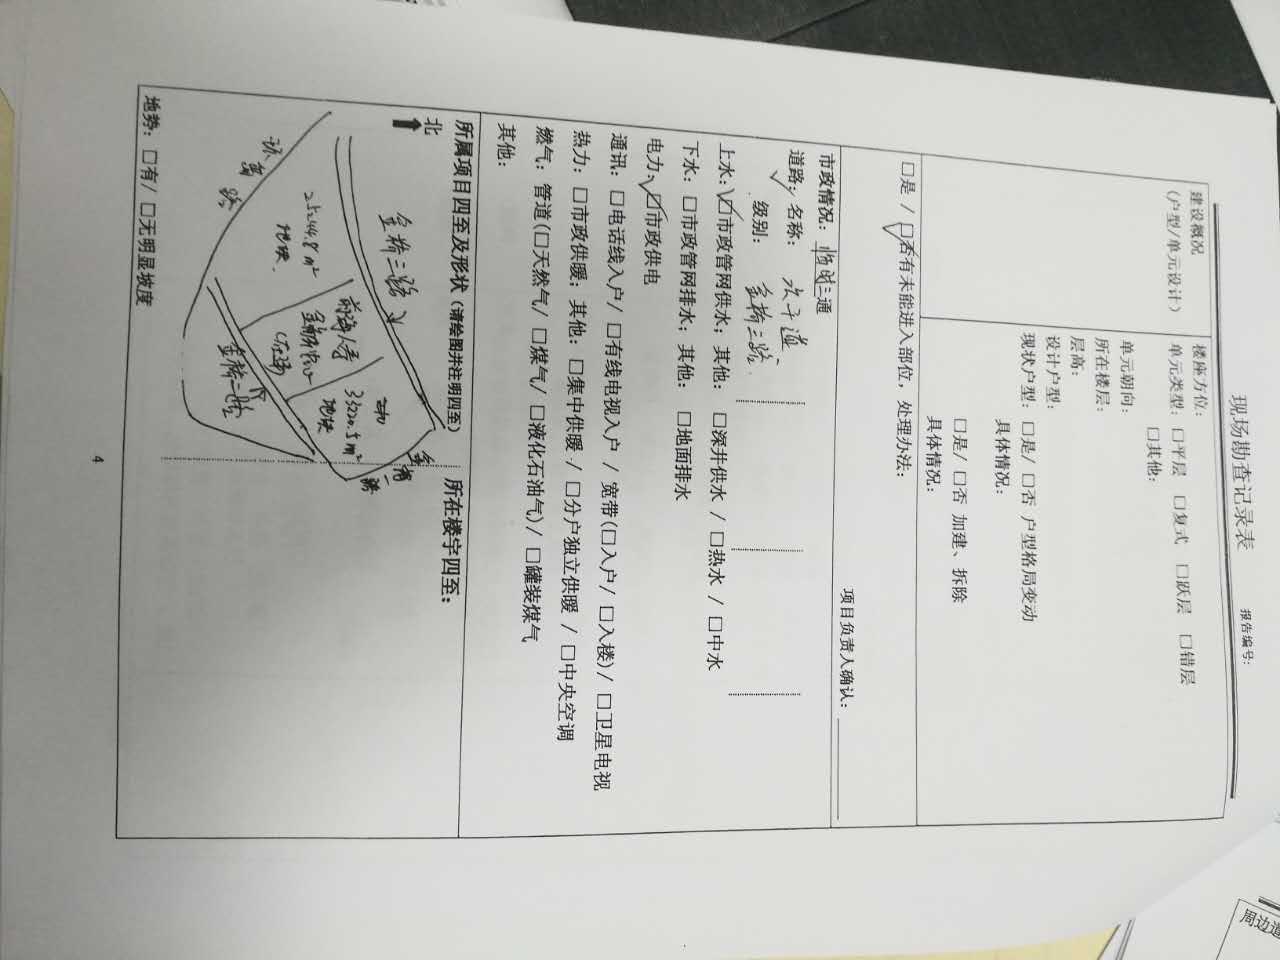 现场勘查记录表
报告编号:
建设概况
(户型/单元设计)
楼座方位:
单元类型: □平层 □复式 □跃层 □错层
□其他:
单元朝向:
所在楼层:
层高:
设计户型:
现状户型: □是/ □否 户型格局变动
具体情况:
□是/ □否 加建、拆除
具体情况:
□是 / □否有未能进入部位, 处理办法:
项目负责人确认:
市政情况: 临时三通
道路: 名称: 次干道
级别: 金桥三路
上水: □市政管网供水; 其他: □深井供水 / □热水 / □中水
下水: □市政管网排水; 其他: □地面排水
电力: □市政供电
通讯: □电话线入户/ □有线电视入户 / 宽带(□入户/ □入楼)/ □卫星电视
热力: □市政供暖; 其他: □集中供暖 / □分户独立供暖 / □中央空调
燃气: 管道(□天然气/ □煤气/ □液化石油气)/ □罐装煤气
其他:
所属项目四至及形状 (请绘图并注明四至)
所在楼宇四至:
北
金桥三路
地块
前海人寿
金融中心
(在建)
33220.5m²
地块
金桥二路
地势: □有/ □无明显坡度
4
周边道